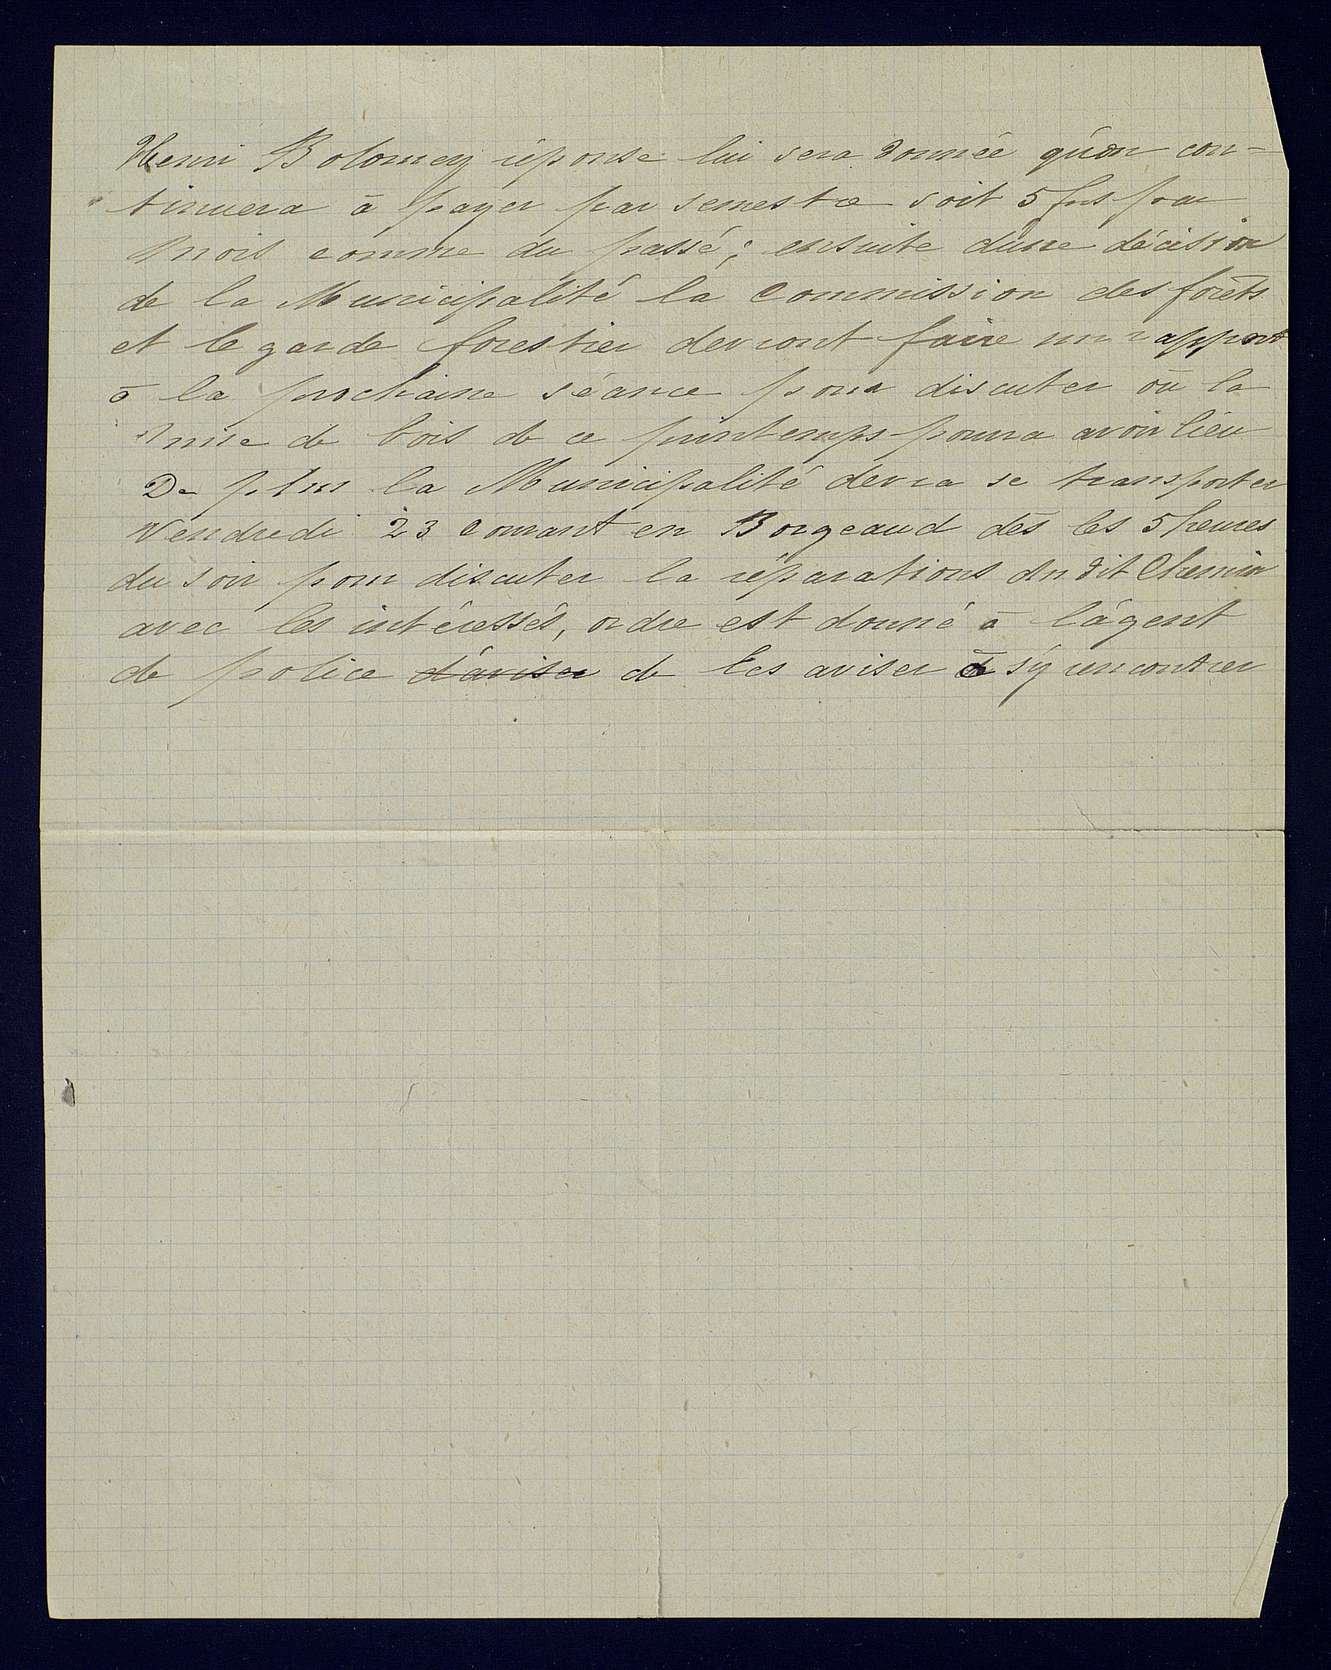 Henri Bolomey réponse lui sera donnée qu'on con-
tinuera à payer par semestre soit 5 frs par
mois comme du passé; ensuite d'une décision
de la Municipalité la Commission des forêts
et le garde forestier devront faire un rapport
à la prochaine séance pour discuter où la
mise de bois de ce printemps pourra avoir lieu
De plus la Municipalité devra se transporter
Vendredi 23 courant en Borgeaud dès les 5 heures
du soir pour discuter la réparations du dit Chemin
avec les intéressés, ordre est donné à l'agent
de police d'aviser de les aviser à s'y rencontrer